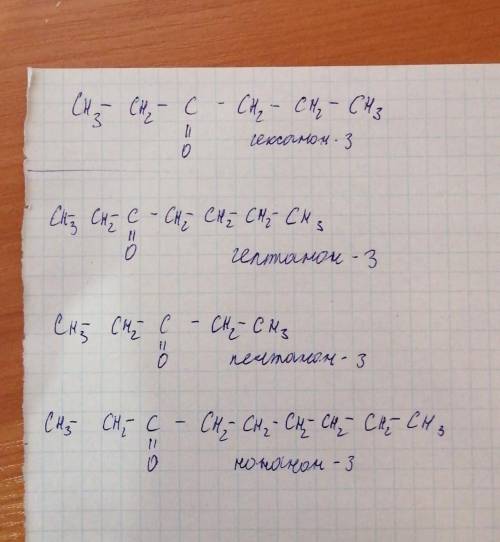 CH₃ – CH₂ – C – CH₂ – CH₂ – CH₃
||
O гексанон-3
CH₃ – CH₂ – C – CH₂ – CH₂ – CH₂ – CH₃
||
O гептанон-3
CH₃ – CH₂ – C – CH₂ – CH₃
||
O пентанон-3
CH₃ – CH₂ – C – CH₂ – CH₂ – CH₂ – CH₂ – CH₂ – CH₃
||
O нонанон-3